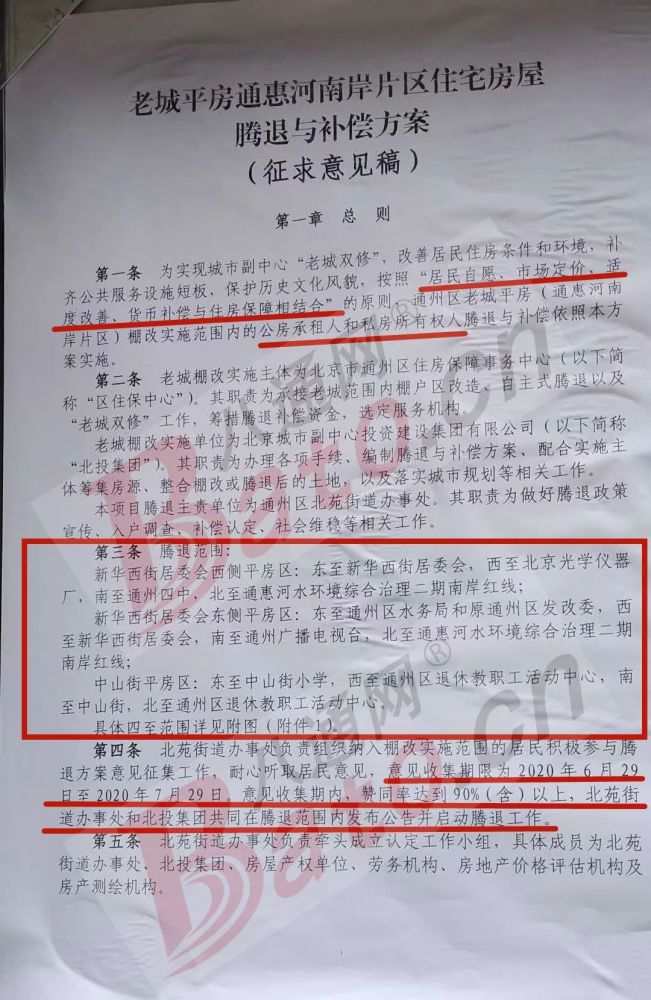 老城平房通惠河南岸片区住宅房屋
腾退与补偿方案
（征求意见稿）
第一章 总 则
第一条 为实现城市副中心“老城双修”，改善居民住房条件和环境，补
齐公共服务设施短板，保护历史文化风貌，按照“居民自愿、市场定价、适
度改善、货币补偿与住房保障相结合”的原则，通州区老城平房（通惠河南
岸片区）棚改实施范围内的公房承租人和私房所有权人腾退与补偿依照本方
案实施。
第二条 老城棚改实施主体为北京市通州区住房保障事务中心（以下简
称“区住保中心”）。其职责为承接老城范围内棚户区改造、自主式腾退以及
“老城双修”工作，筹措腾退补偿资金，选定服务机构。
老城棚改实施单位为北京城市副中心投资建设集团有限公司（以下简称
“北投集团”）。其职责为办理各项手续、编制腾退与补偿方案、配合实施主
体筹集房源、整合棚改或腾退后的土地，以及落实城市规划等相关工作。
本项目腾退主责单位为通州区北苑街道办事处。其职责为做好腾退政策
宣传、入户调查、补偿认定、社会维稳等相关工作。
第三条 腾退范围：
新华西街居委会西侧平房区：东至新华西街居委会，西至北京光学仪器
厂，南至通州四中，北至通惠河水环境综合治理二期南岸红线；
新华西街居委会东侧平房区：东至通州区水务局和原通州区发改委，西
至新华西街居委会，南至通州广播电视台，北至通惠河水环境综合治理二期
南岸红线；
中山街平房区：东至中山街小学，西至通州区退休教职工活动中心，南
至中山街，北至通州区退休教职工活动中心。
具体四至范围详见附图（附件1）。
第四条 北苑街道办事处负责组织纳入棚改实施范围的居民积极参与腾
退方案意见征集工作，耐心听取居民意见，意见收集期限为2020年6月29
日至2020年7月29日，意见收集期内，赞同率达到90%（含）以上，北苑街
道办事处和北投集团共同在腾退范围内发布公告并启动腾退工作。
第五条 北苑街道办事处负责牵头成立认定工作小组，具体成员为北苑
街道办事处、北投集团、房屋产权单位、劳务机构、房地产价格评估机构及
房产测绘机构。
1
八通网®
Bato.cn
八通网®
Bato.cn